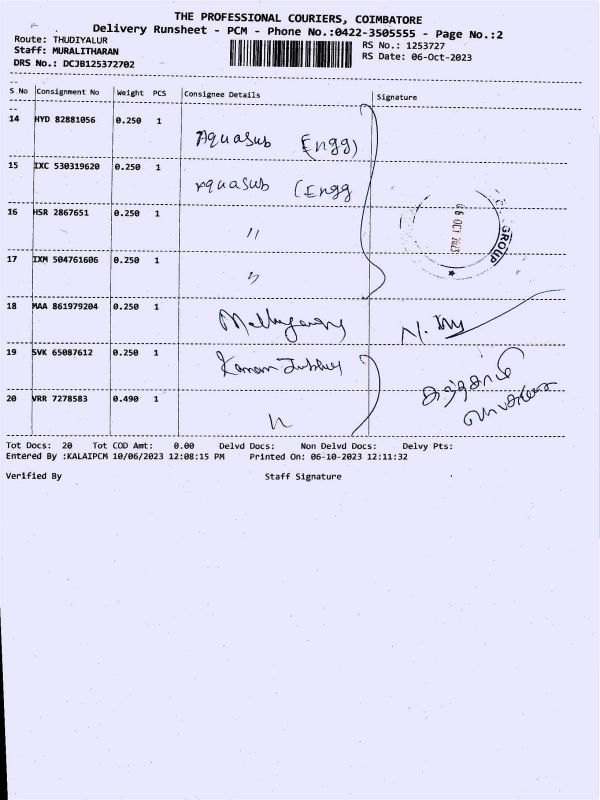 THE PROFESSIONAL COURIERS, COIMBATORE
Delivery Runsheet - PCM - Phone No.:0422-3505555 - Page No.:2
Route: THUDIYALUR
Staff: MURALITHARAN
DRS No.: DCJB125372702
RS No.: 1253727
RS Date: 06-Oct-2023
S No Consignment No Weight PCS Consignee Details Signature
14 HYD 82881056 0.250 1 Aquasub (Engg)
15 IXC 530319620 0.250 1 Aquasub (Engg
16 HSR 2867651 0.250 1 "
17 IXM 504761606 0.250 1 "
06 OCT 2023
GROUP
18 MAA 861979204 0.250 1
19 SVK 65087612 0.250 1
20 VRR 7278583 0.490 1 "
Tot Docs: 20 Tot COD Amt: 0.00 Delvd Docs: Non Delvd Docs: Delvy Pts:
Entered By :KALAIPCM 10/06/2023 12:08:15 PM Printed On: 06-10-2023 12:11:32
Verified By Staff Signature